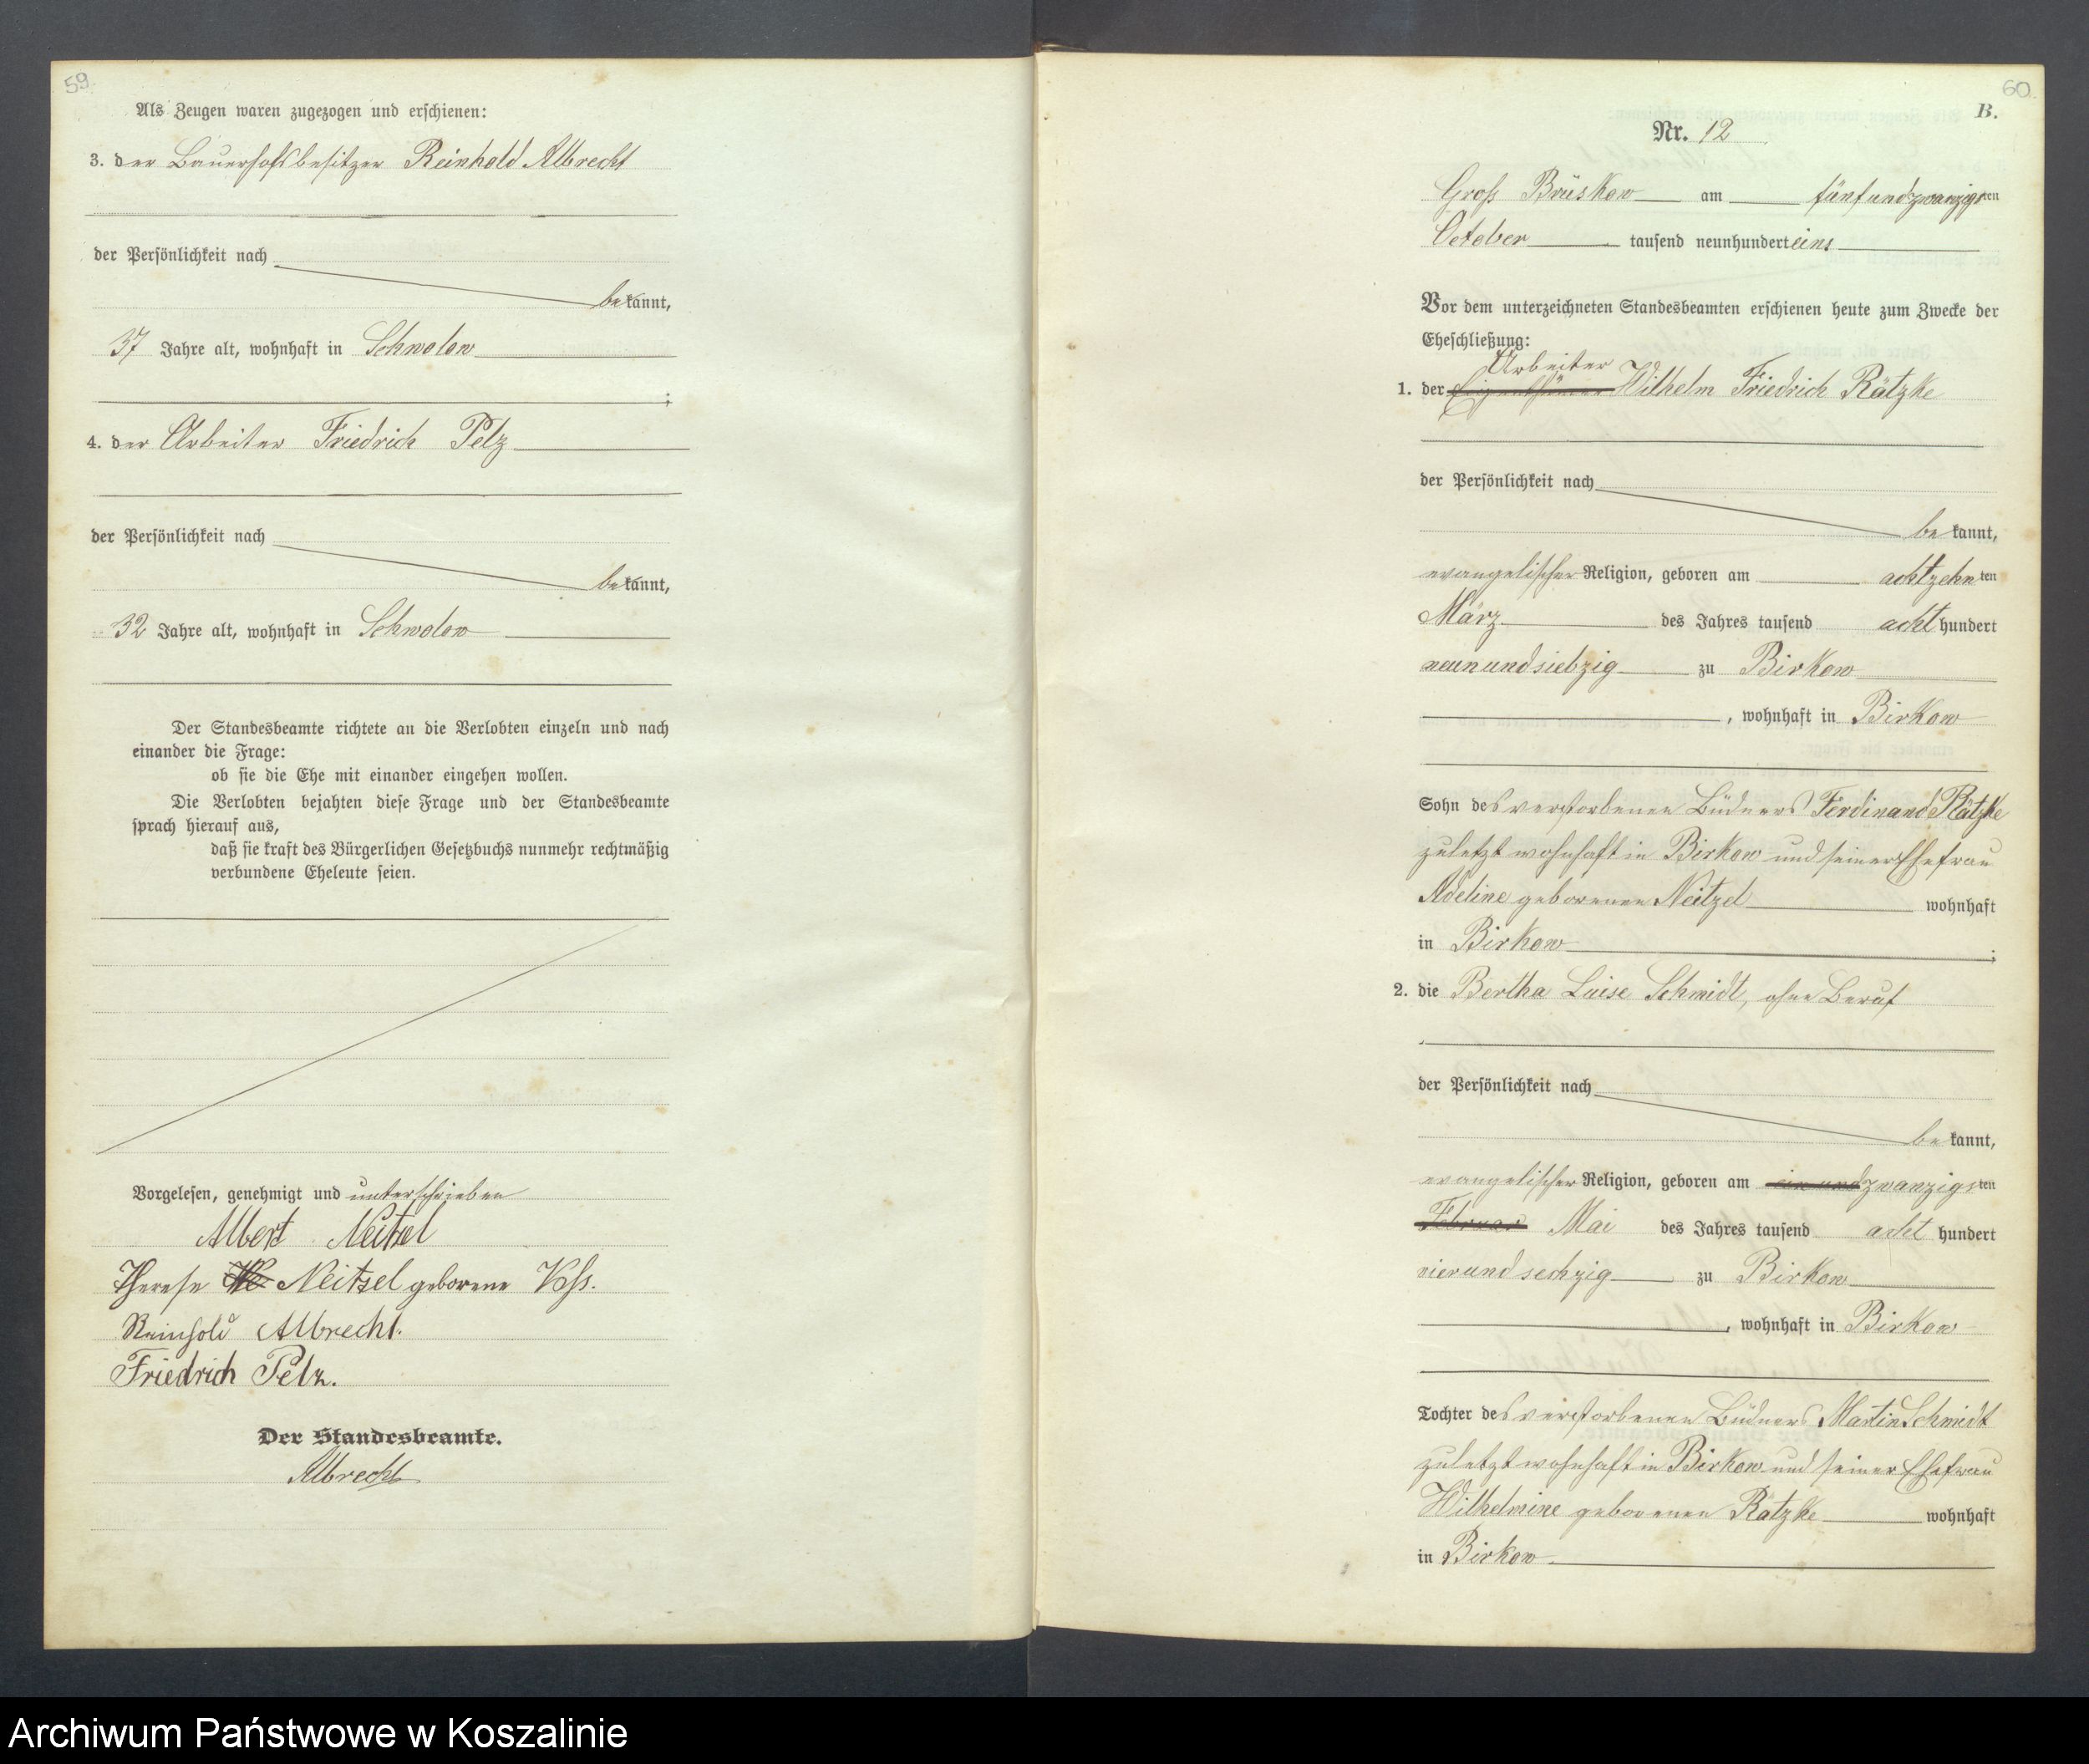 59.
Als Zeugen waren zugezogen und erschienen:
3. der Bauerhofsbesitzer Reinhold Albrecht
der Persönlichkeit nach
bekannt,
37 Jahre alt, wohnhaft in Schwolow
;
4. der Arbeiter Friedrich Pelz
der Persönlichkeit nach
bekannt,
32 Jahre alt, wohnhaft in Schwolow
Der Standesbeamte richtete an die Verlobten einzeln und nach
einander die Frage:
ob sie die Ehe mit einander eingehen wollen.
Die Verlobten bejahten diese Frage und der Standesbeamte
sprach hierauf aus,
daß sie kraft des Bürgerlichen Gesetzbuchs nunmehr rechtmäßig
verbundene Eheleute seien.
Vorgelesen, genehmigt und unterschrieben
Albert Neitzel
Therese Neitzel geborene Voß.
Reinhold Albrecht.
Friedrich Pelz.
Der Standesbeamte.
Albrecht
60.
B.
Nr. 12
Groß Brüskow am fünfundzwanzigsten
October tausend neunhundert eins
Vor dem unterzeichneten Standesbeamten erschienen heute zum Zwecke der
Eheschließung:
Arbeiter
1. der Eigenthümer Wilhelm Friedrich Rätzke
der Persönlichkeit nach
bekannt,
evangelischer Religion, geboren am achtzehnten
März des Jahres tausend achthundert
neunundsiebzig zu Birkow
, wohnhaft in Birkow
Sohn des verstorbenen Büdners Ferdinand Rätzke
zuletzt wohnhaft in Birkow und seiner Ehefrau
Adeline geborenen Neitzel wohnhaft
in Birkow ;
2. die Bertha Luise Schmidt, ohne Beruf
der Persönlichkeit nach
bekannt,
evangelischer Religion, geboren am ein und zwanzigsten
Februar Mai des Jahres tausend acht hundert
vierundsechzig zu Birkow
, wohnhaft in Birkow
Tochter des verstorbenen Büdners Martin Schmidt
zuletzt wohnhaft in Birkow und seiner Ehefrau
Wilhelmine geborenen Rätzke wohnhaft
in Birkow.
Archiwum Państwowe w Koszalinie